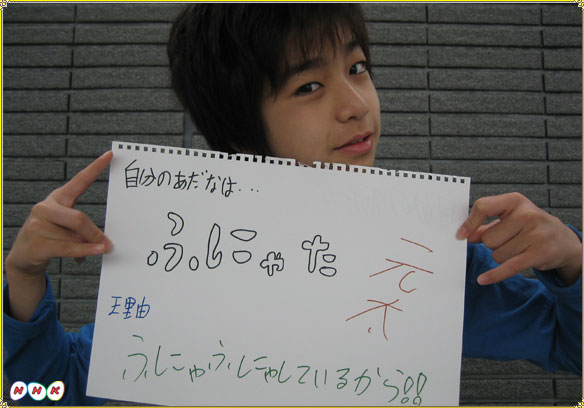 自分のあだなは...
ふにゃた
理由
ふにゃふにゃしているから!!
NHK